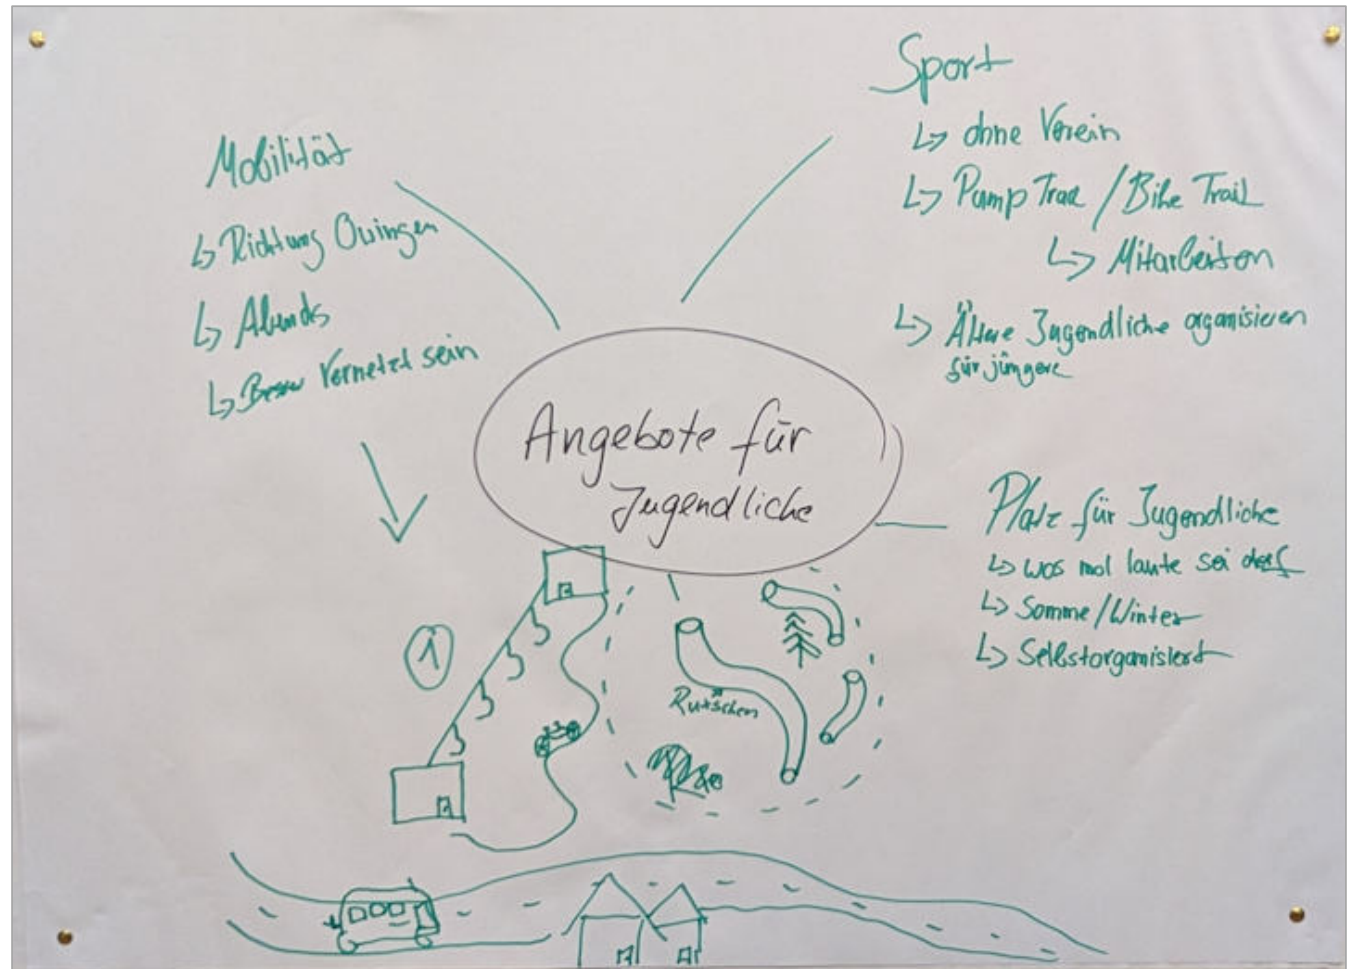 Mobilität
↳ Richtung Owingen
↳ Abends
↳ Besser Vernetzt sein
Sport
↳ ohne Verein
↳ Pump Trac / Bike Trail
↳ Mitarbeiten
↳ Ältere Jugendliche organisieren
für jüngere
Angebote für
Jugendliche
Platz für Jugendliche
↳ wos mol laute sei derf
↳ Somme/Winter
↳ Selbstorganisiert
1
Rutschen